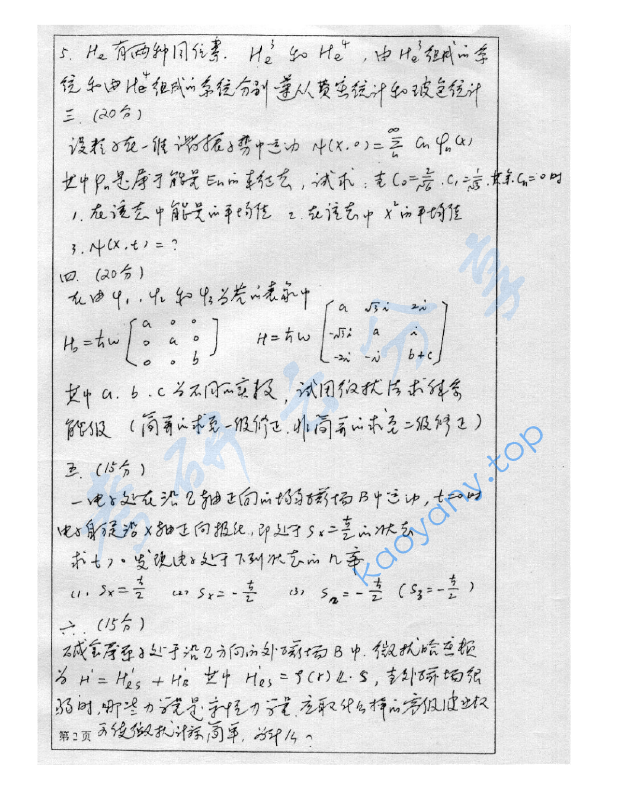 5. He 有两种同位素. He³ 和 He⁴, 由 He³ 组成的系
统和由 He⁴ 组成的系统分别遵从费密统计和玻色统计
三. (20分)
设粒子在一维谐振子势中运动 ψ(x,0)=Σ_n^∞ Cn φn(x)
其中 φn 是属于能量 En 的本征态, 试求: 当 C₀=2/√6, C₁=1/√3, 其余 Cn=0 时
1. 在该态中能量的平均值 2. 在该态中 x² 的平均值
3. ψ(x,t)=?
四. (20分)
在由 ψ₁, ψ₂ 和 ψ₃ 为基的表象中
H₀=ħω [ a 0 0 ; 0 a 0 ; 0 0 b ] H=ħω [ a √3i 2i ; -√3i a i ; -2i -i b+c ]
其中 a. b. c 为不同的实数, 试用微扰法求体系
能级 (简并的求至一级修正, 非简并的求至二级修正)
五. (15分)
一电子处在沿 Z 轴正向的均匀磁场 B 中运动, t=0 时
电子自旋沿 X 轴正向极化, 即处于 Sx=ħ/2 的状态
求 t>0 发现电子处于下列状态的几率
(1) Sx=ħ/2 (2) Sx=-ħ/2 (3) =-ħ/2 (S₃=-ħ/2)
六. (15分)
碱金属原子处于沿 Z 方向的外磁场 B 中. 微扰哈密顿
为 H'=H'ₑₛ+H'_B 其中 H'ₑₛ=ξ(r) L·S, 当外磁场很
弱时, 哪些力学量是守恒力学量, 应取什么样的零级波函数
可使微扰计算简单, 为什么?
第 2 页
考研云分享
kaoyany.top